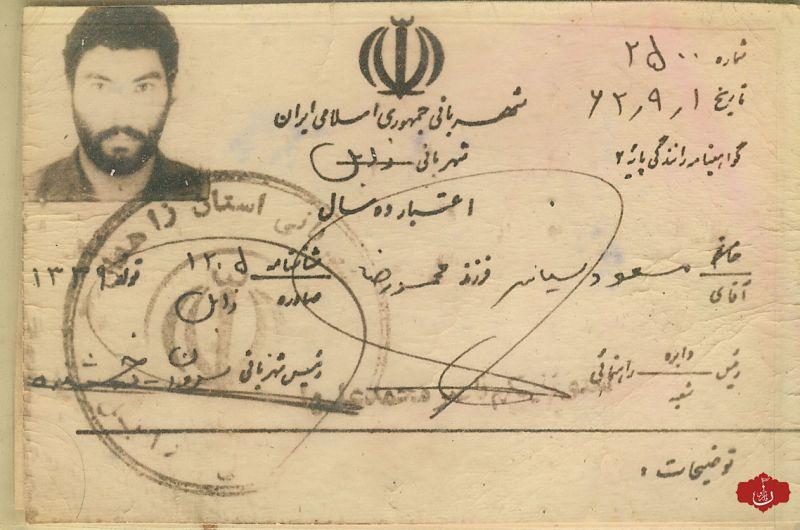 شماره ۲۵۰۰
تاریخ ۶۲٫۹٫۱
شهربانی جمهوری اسلامی ایران
گواهینامه رانندگی پایه ۲
شهربانی زابل
اعتبار ده سال
خانم
آقای
مسعود سیاسر فرزند محمدرضا شناسنامه ۱۲۰۵ تولد ۱۳۳۹
صادره زابل
رئیس دایره راهنمائی
شعبه
رئیس شهربانی
توضیحات :